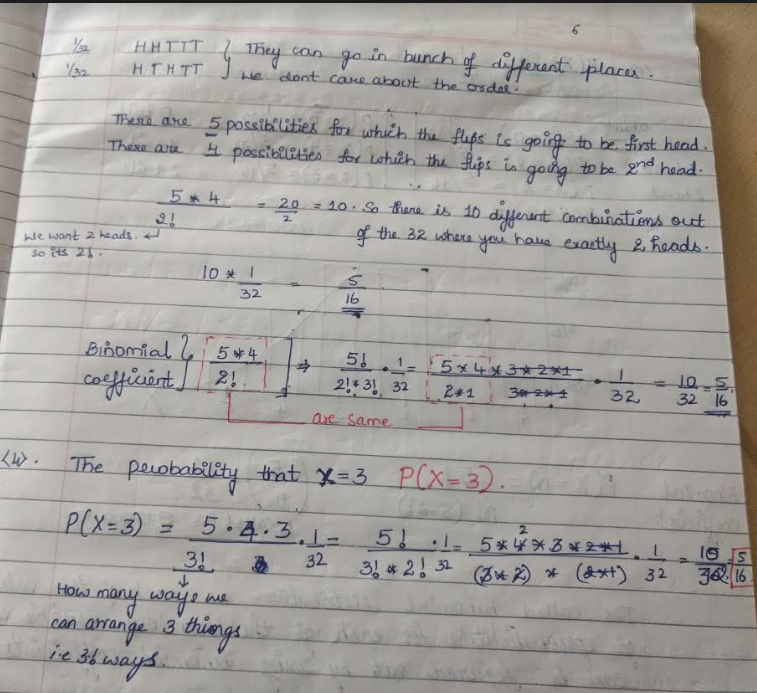 6
1/32 HHTTT } They can go in bunch of different places.
1/32 HTHTT } we dont care about the order.
There are 5 possibilities for which the flips is going to be first head.
There are 4 possibilities for which the flips is going to be 2nd head.
5 * 4 / 2! = 20/2 = 10. So there is 10 different combinations out
of the 32 where you have exactly 2 heads.
We want 2 heads.
so its 2!.
10 * 1/32 = 5/16
Binomial coefficient } 5*4 / 2! ] ⇒ 5! / 2!*3! · 1/32 = 5*4*3*2*1 / 2*1 3*2*1 · 1/32 = 10/32 = 5/16
are same
<4>. The perobability that X=3 P(X=3).
P(X=3) = 5·4·3 / 3! · 1/32 = 5! / 3!*2! · 1/32 = 5*4*3*2*1 / (3*2) * (2*1) · 1/32 = 10/32 = 5/16
2
How many ways we
can arrange 3 things
i.e 3! ways.